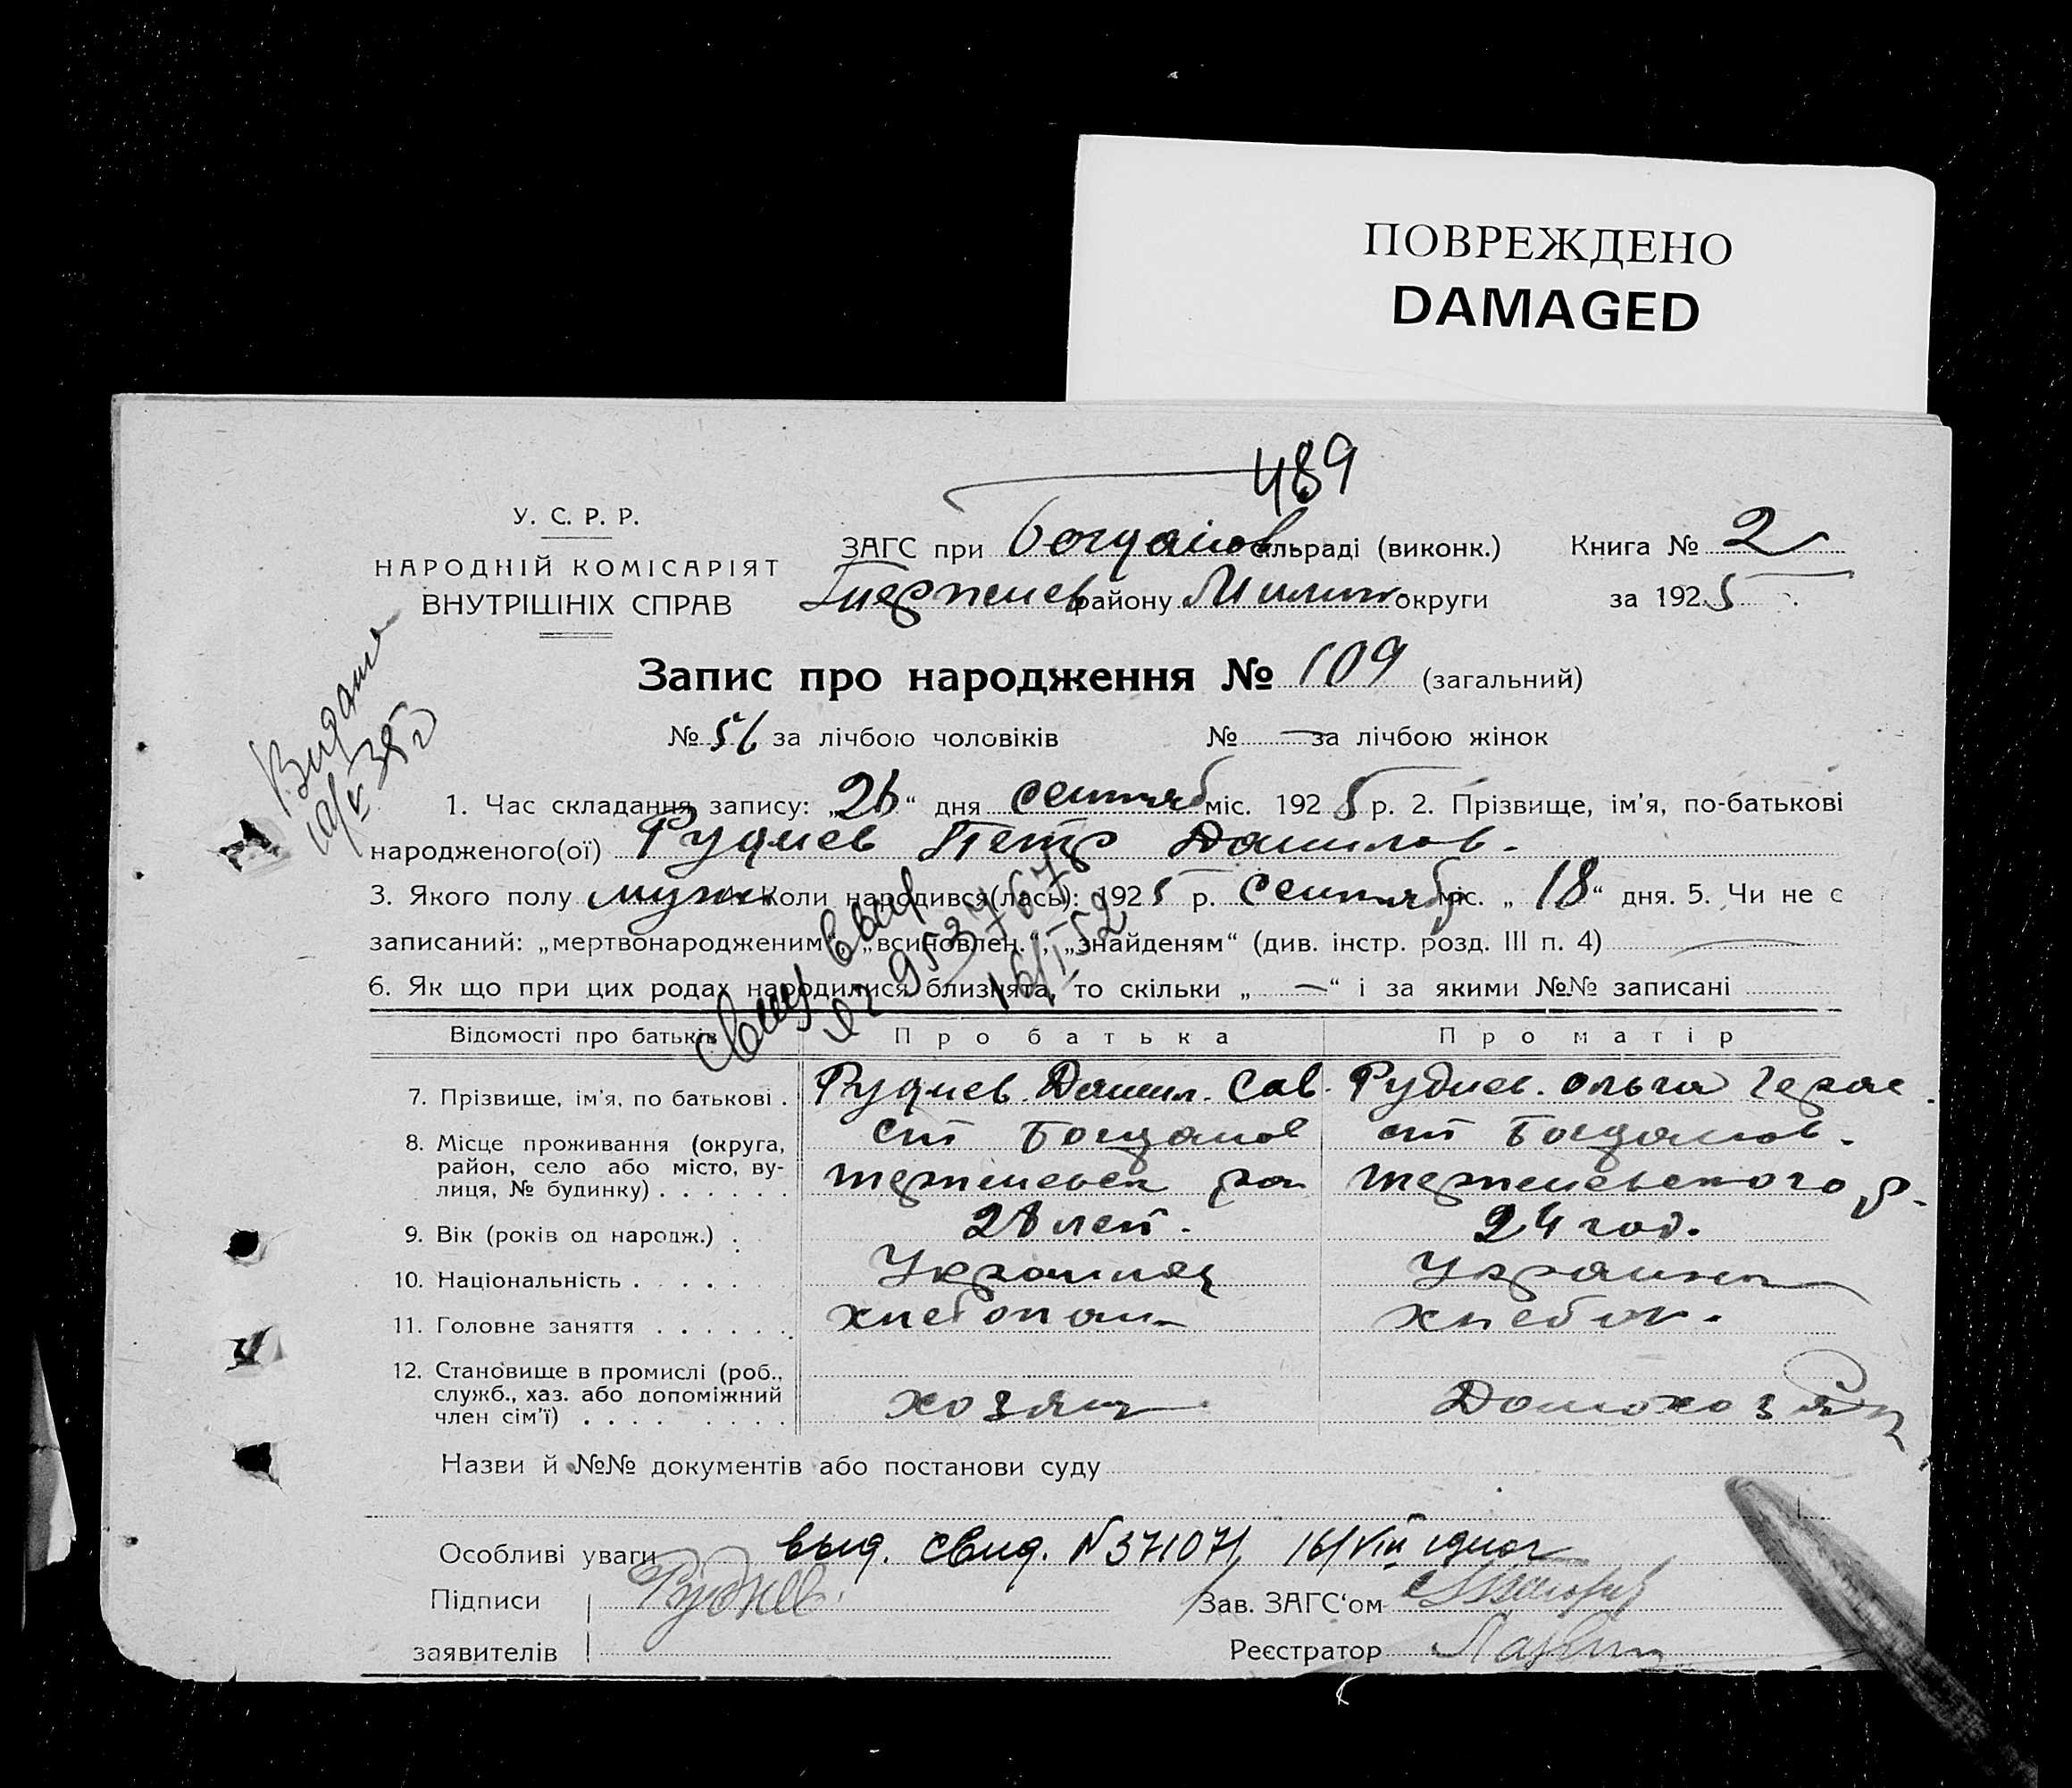 ПОВРЕЖДЕНО
DAMAGED
489
У. С. Р. Р.
НАРОДНІЙ КОМІСАРІЯТ
ВНУТРІШНІХ СПРАВ
ЗАГС при Богданов сільраді (виконк.)
району округи
Книга № 2
за 1925
Запис про народження № 109 (загальний)
№ 56 за лічбою чоловіків № — за лічбою жінок
Видано
19/V 35 г
1. Час складання запису: „26“ дня сентяб міс. 1925 р. 2. Прізвище, ім'я, по-батькові
народженого(ої) Руднев Петр Данилов.
3. Якого полу муж 4. Коли народився(лась): 1925 р. сентяб міс. „18“ дня. 5. Чи не є
записаний: „мертвонародженим“, „всиновлен.“, „знайденям“ (див. інстр. розд. III п. 4)
6. Як що при цих родах народилися близнята, то скільки „—“ і за якими №№ записані
16/I 52
Відомості про батьків
Про батька
Про матір
7. Прізвище, ім'я, по батькові . Руднев Данил. Сав. Руднев. Ольга Герас.
8. Місце проживання (округа, район, село або місто, вулиця, № будинку) . . . . . .
ст Богданов
ст Богданов.
9. Вік (років од народж.) . 28 лет. 24 год.
10. Національність . . . . Украинец Украинк
11. Головне заняття . . . . . . хлебопаш хлебоп.
12. Становище в промислі (роб., служб., хаз. або допоміжний член сім'ї) . . . . . . . .
хозяин
Домохозяин
Назви й №№ документів або постанови суду
Особливі уваги выд. свид. N 371071, 16/VIII
Підписи
заявителів
Руднев
Зав. ЗАГС'ом
Реєстратор